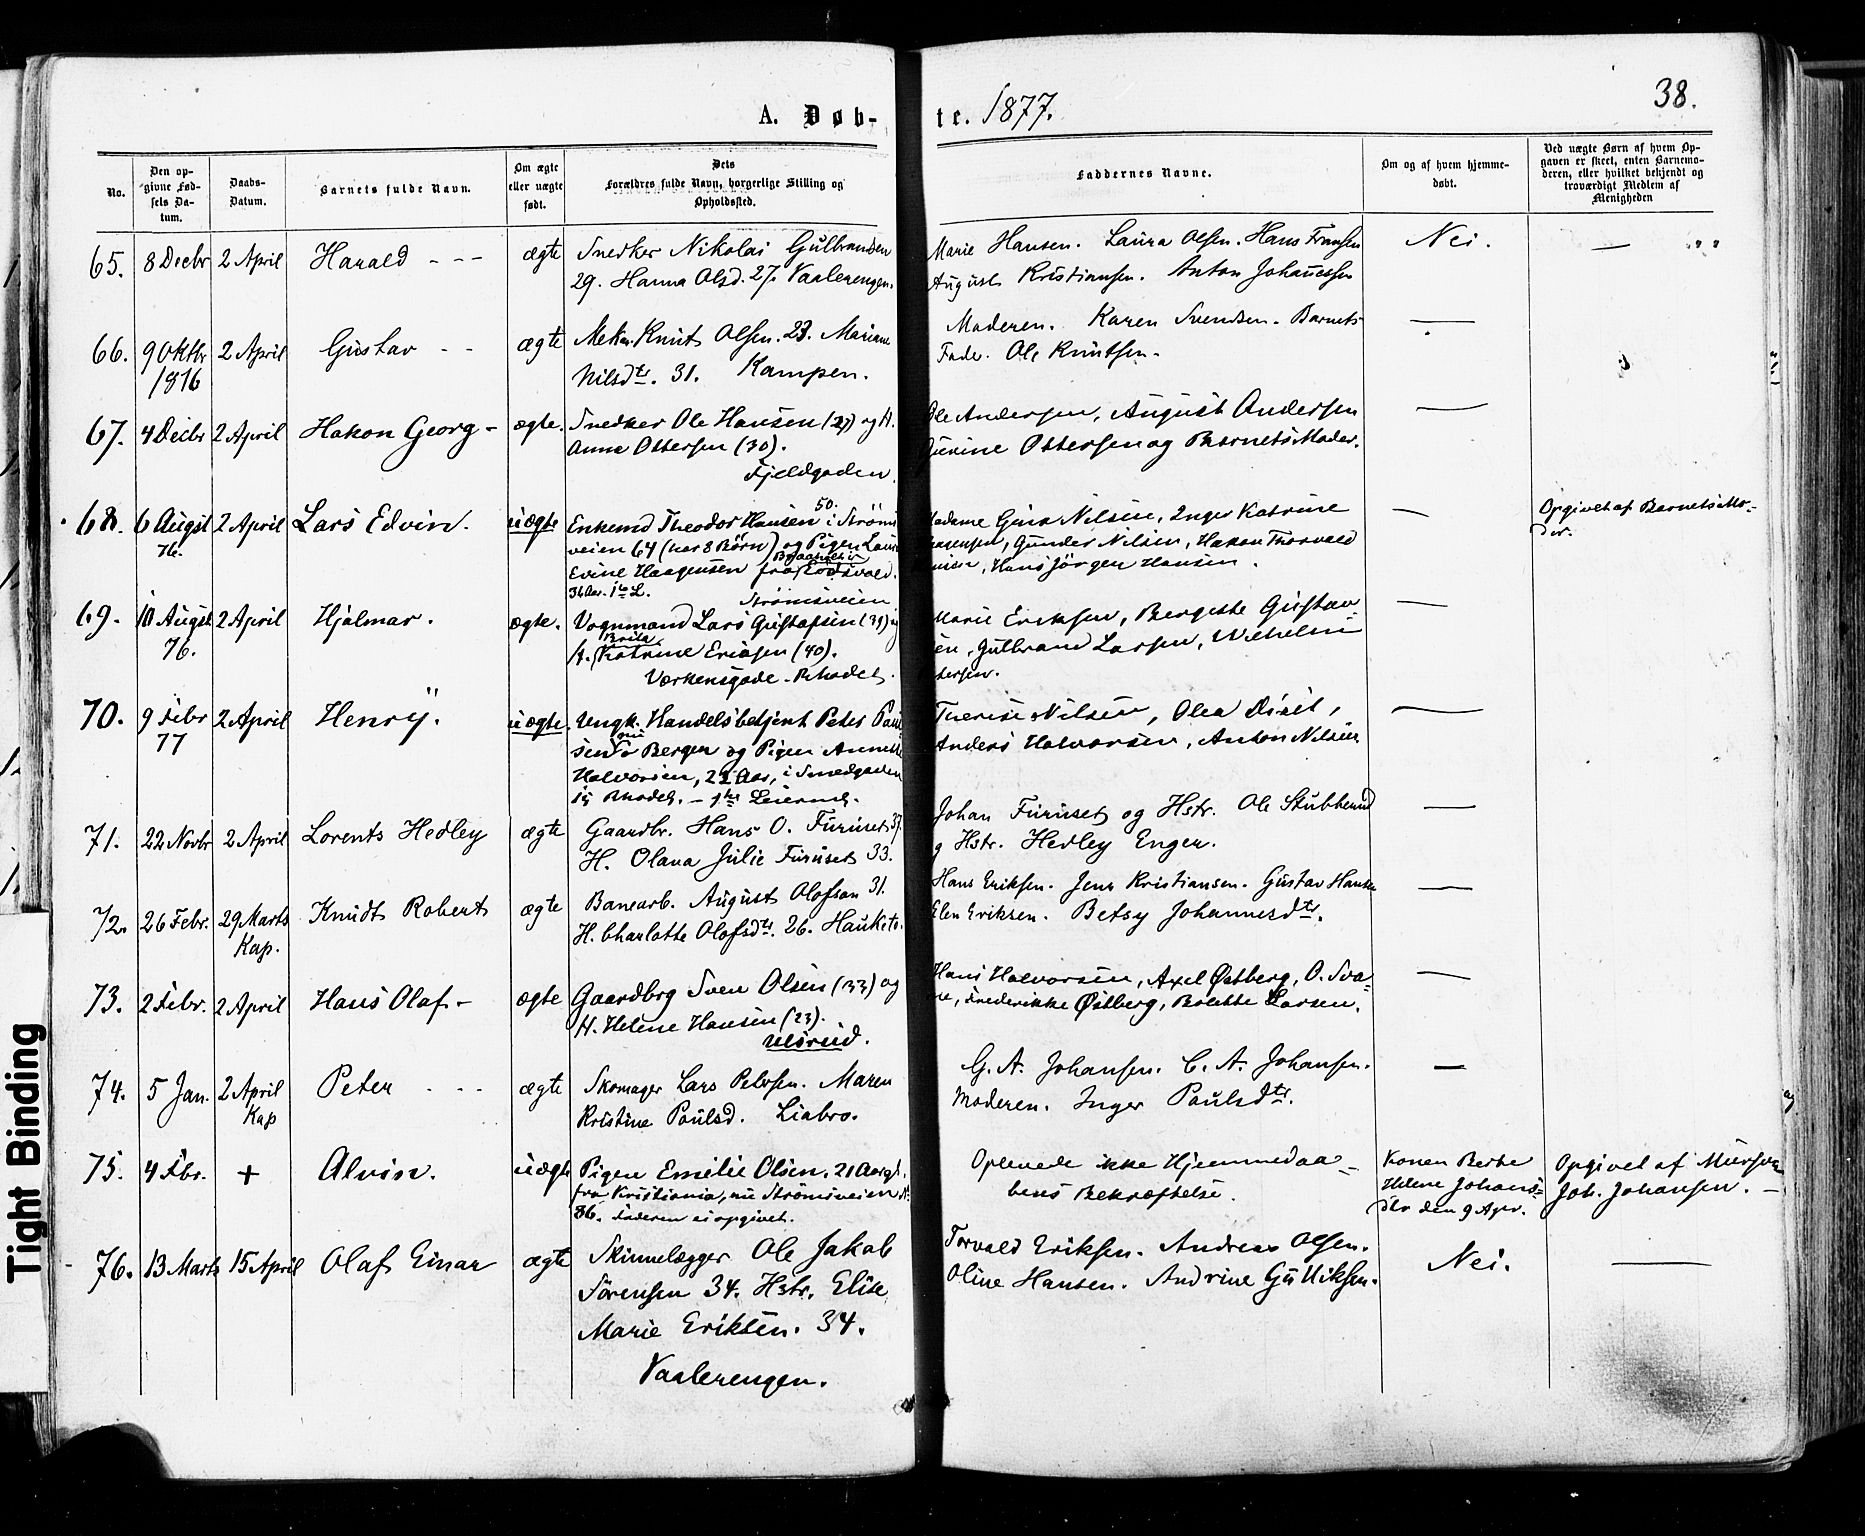 38.
A. Døb- te. 1877.
No. | Den opgivne Fødsels Datum. | Daabs-Datum. | Barnets fulde Navn. | Om ægte eller uægte født. | Dets Forældres fulde Navn, borgerlige Stilling og Opholdssted. | Faddernes Navne. | Om og af hvem hjemmedøbt. | Ved uægte Børn af hvem Opgaven er skeet, enten Barnemoderen, eller hvilket bekjendt og troværdigt Medlem af Menigheden
65. 8 Decbr 2 April Harald - - - ægte Snedker Nikolai Gulbrandsen Marie Hansen. Laura Olsen. Hans Fransen Nei. —
29. Hanna Olsd. 27. Vaalerengen. August Kristiansen. Anton Johannessen
66. 9 Oktbr 2 April Gustav - - ægte Mek. Knut Olsen. 23. Mariane Moderen. Karen Svendsen. Barnets —
1876 Nilsdtr. 31. Kampen. Fader. Ole Knutsen.
67. 4 Decbr 2 April Hakon Georg - ægte. Snedker Ole Hansen (27) og H. Ole Andersen, August Andersen —
Anna Ottersen (30). Ottersen og Barnets Moder.
Fjeldgaden.
68. 6 Augst 2 April Lars Edvin. uægte Enkemd Theodor Hansen 50. i Strøms Madame Gina Nilsen, Inger Katrine — Opgivet af Barnets Mo-
76. veien 64 (har 8 Børn) og Pigen Laura Gunder Nilsen, Hakon Thorvald der.
Evine Haagensen fra Eidsvold. Hans Jörgen Hansen.
36 Aar. 1ste L. Strømsveien
69. 10 Augst 2 April Hjalmar. ægte. Vognmand Lars Gustafsen (39) og Marie Eriksen, Bergette Gustav —
76. H. Brita Katrine Ericsen (40). sen, Gulbrand Larsen, Wilhelm
Værkensgade - Rhodel. Petersen.
70. 9 Febr 2 April Henry. uægte. Ungk. Handelsbetjent Peter Paul Therese Nilsen, Olea —
77 sen nu i Bergen og Pigen Annette Anders Halvorsen, Anton Nilsen
Halvorsen, 22 Aar, i Smedgaden
15 Rhodel. - 1ste Leierm.
71. 22 Novbr 2 April Lorents Hedley ægte Gaardbr. Hans O. Furuset 37. Johan Furuset og Hstr. Ole Stubberud —
H. Olava Julie Furuset 33. og Hstr. Hedley Enger.
72. 26 Febr. 29 Marts Knudt Robert ægte Banearb. August Olofson 31. Hans Eriksen. Jens Kristiansen. Gustav Hansen —
Kap. H. Charlotte Olofsdtr. 26. Hauketo. Elen Eriksen. Betsy Johannesdtr.
73. 2 Febr. 2 April Hans Olaf - ægte Gaardbrg Sven Olsen (33) og Hans Halvorsen, Axel Østberg, O. Sva- —
H. Helene Hansen (23). Frederikke Østberg, Bolette Larsen.
Ulsrud.
74. 5 Jan. 2 April Peter - - - ægte Skomager Lars Petersen. Maren G. A. Johansen. C. A. Johansen. —
Kap Kristine Paulsd. Liabro. Moderen. Inger Paulsdtr.
75. 4 Fbr. + Alvin. uægte Pigen Emilie Olsen. 21 Aar gl. Oplevede ikke Hjemmedaa- Konen Berte Opgivet af Mursv.
fra Kristiania, nu Strömsveien No. bens Bekræftelse. Helene Johans- Joh. Johansen. -
86. Faderen ei opgivet. dtr den 9 Apr.
76. 13 Marts 15 April Olaf Einar ægte Skinnelægger Ole Jakob Torvald Eriksen. Andreas Olsen. Nei. —
Sörensen 34. Hstr. Elise Oline Hansen. Andrine Gulliksen.
Marie Eriksen. 34.
Vaalerengen.
Tight Binding